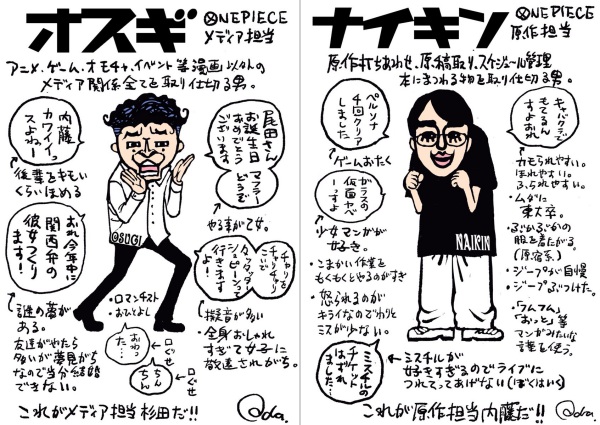 オスギ
ONEPIECE
メディア担当
アニメ、ゲーム、オモチャ、イベント等漫画以外の
メディア関係全てを取り仕切る男。
内藤
カワイイっ
スよねー
後輩をキモい
くらいほめる
尾田さん
お誕生日
おめでとう
ございます
マフラー
どうぞ
やる事が乙女。
おれ今年中に
関西弁の
彼女つくり
ます!
謎の夢が
ある。
友達がやたら
多いが夢見がち
なので当分結婚
できない。
チャリを
チャリチャリ
こいで
タッタッターって
シュピーンって
行きます
よ!
擬音が多い
・全身おしゃれ
すぎて女子に
敬遠されがち。
・ロマンチスト
・おっとしょい
おわっ
た…
口ぐせ
ちん
ちん
口ぐせ
©SUGI
これがメディア担当杉田だ!!
Oda.
ナイキン
ONEPIECE
原作担当
原作打ちあわせ、原稿取り、スケジュール管理
本にまつわる物を取り仕切る男。
ペルソナ
4回クリア
しました
ゲームおたく
ガラスの
仮面ヤベ
ーっすよ
少女マンガが
好き。
・こまかい作業を
もくもくとやるのがすき
・怒られるのが
キライなのでわりと
ミスが少ない。
キャバクラで
モテるん
すよおれ
・カモられやすい。
ほれやすい。
ふられやすい。
・ムダに
東大卒。
・ぶかぶかの
服を着たがる。
(原宿系)
・ジープが自慢
・ジープぶつけた。
・「ワムフム」
「おっと」等
マンガみたいな
言葉を使う。
NAIKIN
ミスチルの
チケット
はずれ
ました
ミスチルが
好きすぎるのでライブに
つれてってあげない(ぼくはいく)
これが原作担当内藤だ!!
Oda.